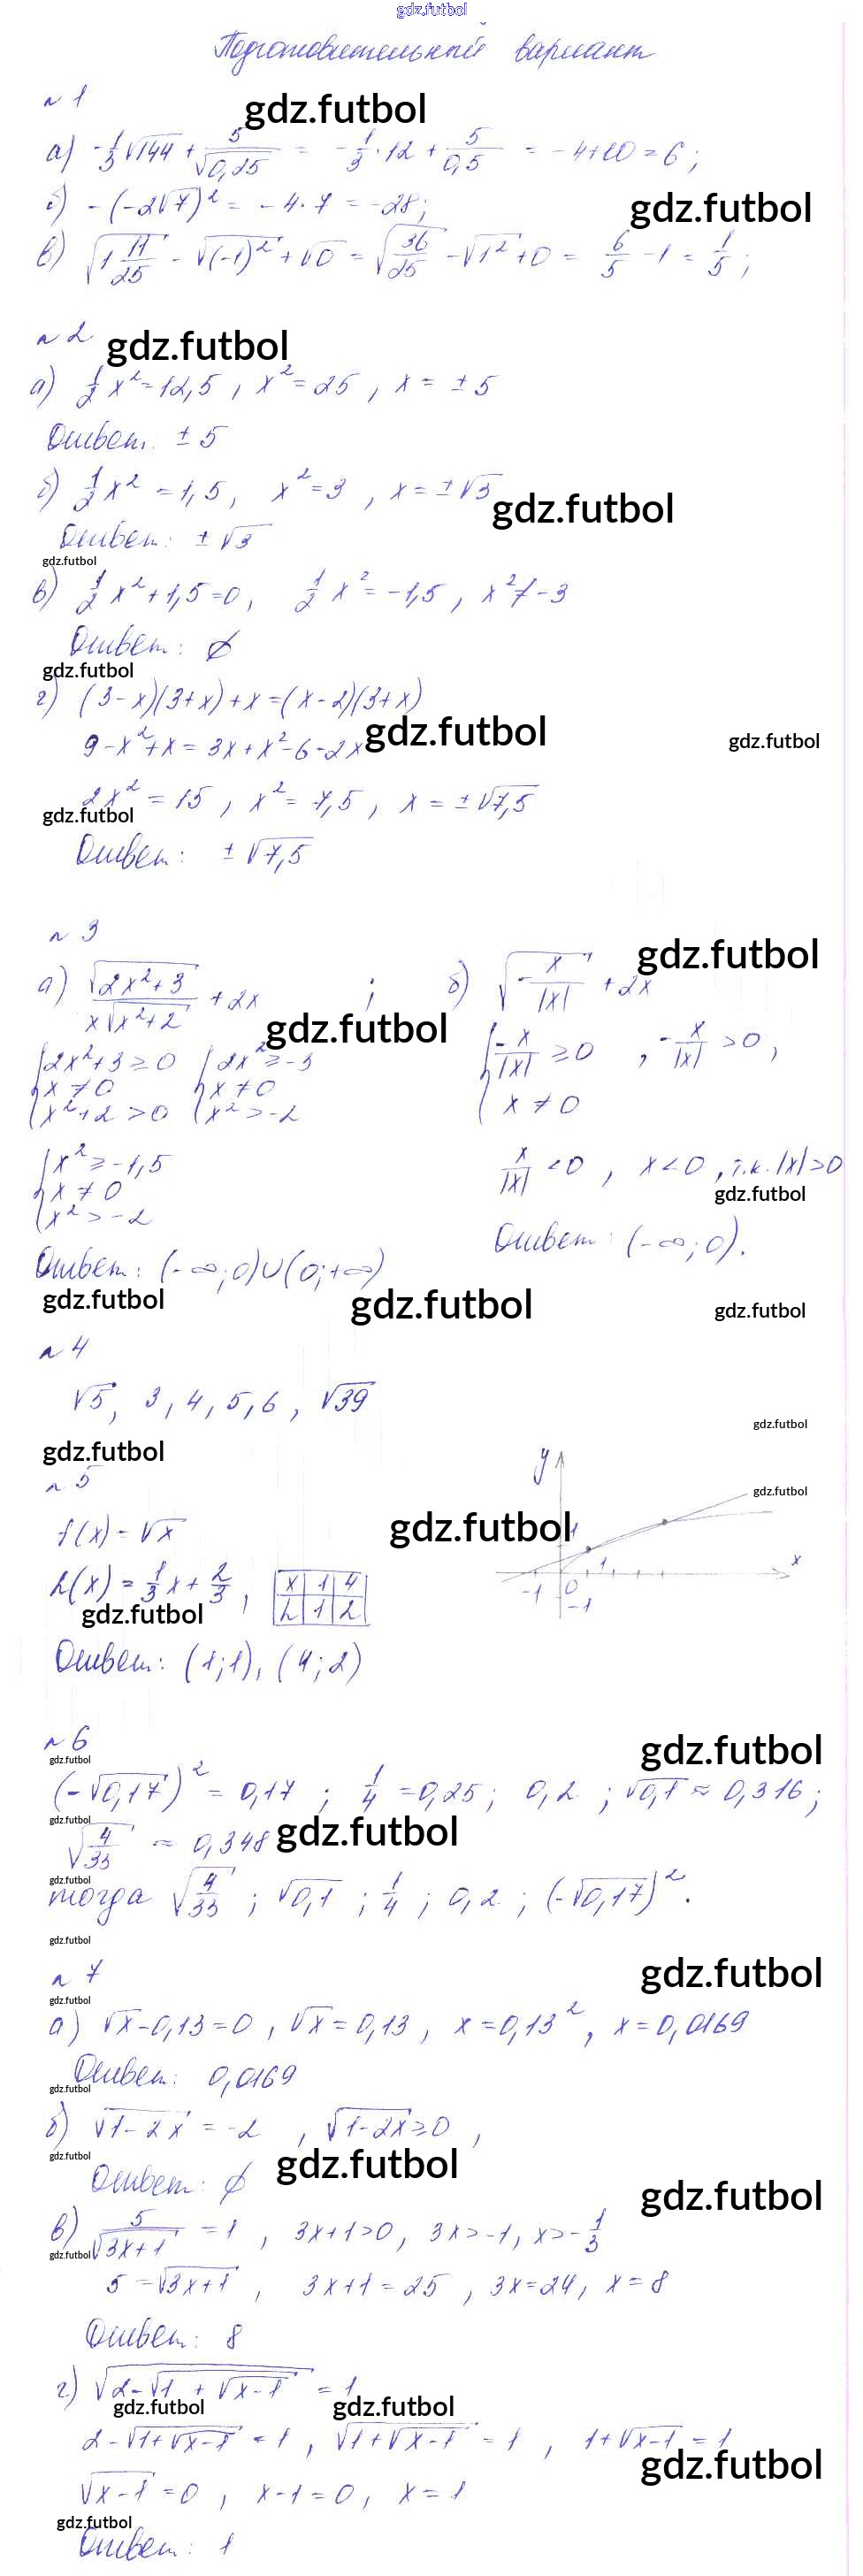 gdz.futbol
Подготовительный вариант
№ 1
gdz.futbol
а) -1/3 √144 + 5/√0,25 = -1/3 · 12 + 5/0,5 = -4+10 = 6;
б) -(-2√7)² = -4 · 7 = -28;
gdz.futbol
в) √(1 11/25) - √(-1)² + √0 = √(36/25) - √1² + 0 = 6/5 - 1 = 1/5;
№ 2
gdz.futbol
а) 1/2 x² = 12,5, x² = 25, x = ±5
Ответ: ±5
б) 1/2 x² = 1,5, x² = 3, x = ±√3
gdz.futbol
Ответ: ±√3
gdz.futbol
в) 1/2 x² + 1,5 = 0, 1/2 x² = -1,5, x² ≠ -3
Ответ: ∅
gdz.futbol
г) (3-x)(3+x)+x=(x-2)(3+x)
9-x²+x = 3x+x²-6-2x
gdz.futbol
gdz.futbol
2x² = 15, x² = 7,5, x = ±√7,5
gdz.futbol
Ответ: ±√7,5
№ 3
gdz.futbol
а) √(2x²+3)/(x√(x²+2)) + 2x ; б) √(-x/|x|) + 2x
gdz.futbol
{2x²+3 ≥ 0 {2x² ≥ -3 {-x/|x| ≥ 0, -x/|x| > 0,
x ≠ 0 x ≠ 0 x ≠ 0
x²+2 > 0 x² > -2
{x² ≥ -1,5 x/|x| < 0, x < 0, т.к. |x| > 0
x ≠ 0
gdz.futbol
x² > -2
Ответ: (-∞;0)∪(0;+∞) Ответ: (-∞;0).
gdz.futbol
gdz.futbol
gdz.futbol
№ 4
√5, 3, 4, 5, 6, √39
gdz.futbol
gdz.futbol
№ 5
y
gdz.futbol
f(x) = √x
gdz.futbol
1
h(x) = 1/3 x + 2/3, x 1 4
h 1 2
-1 0 1 x
-1
gdz.futbol
Ответ: (1;1), (4;2)
№ 6
gdz.futbol
gdz.futbol
(-√0,17)² = 0,17 ; 1/4 = 0,25; 0,2 ; √0,1 ≈ 0,316;
gdz.futbol
√(4/33) ≈ 0,348
gdz.futbol
gdz.futbol
тогда √(4/33) ; √0,1 ; 1/4 ; 0,2 ; (-√0,17)².
gdz.futbol
№ 7
gdz.futbol
gdz.futbol
а) √x-0,13=0, √x=0,13, x=0,13², x=0,0169
Ответ: 0,0169
gdz.futbol
б) √(1-2x) = -2, √(1-2x) ≥ 0,
gdz.futbol
gdz.futbol
Ответ: ∅
gdz.futbol
в) 5/√(3x+1) = 1, 3x+1>0, 3x>-1, x>-1/3
gdz.futbol
5 = √(3x+1), 3x+1 = 25, 3x=24, x=8
Ответ: 8
г) √(2-√(1+√(x-1))) = 1
gdz.futbol
gdz.futbol
2-√(1+√(x-1)) = 1, √(1+√(x-1)) = 1, 1+√(x-1) = 1
gdz.futbol
√(x-1) = 0, x-1=0, x=1
gdz.futbol
Ответ: 1